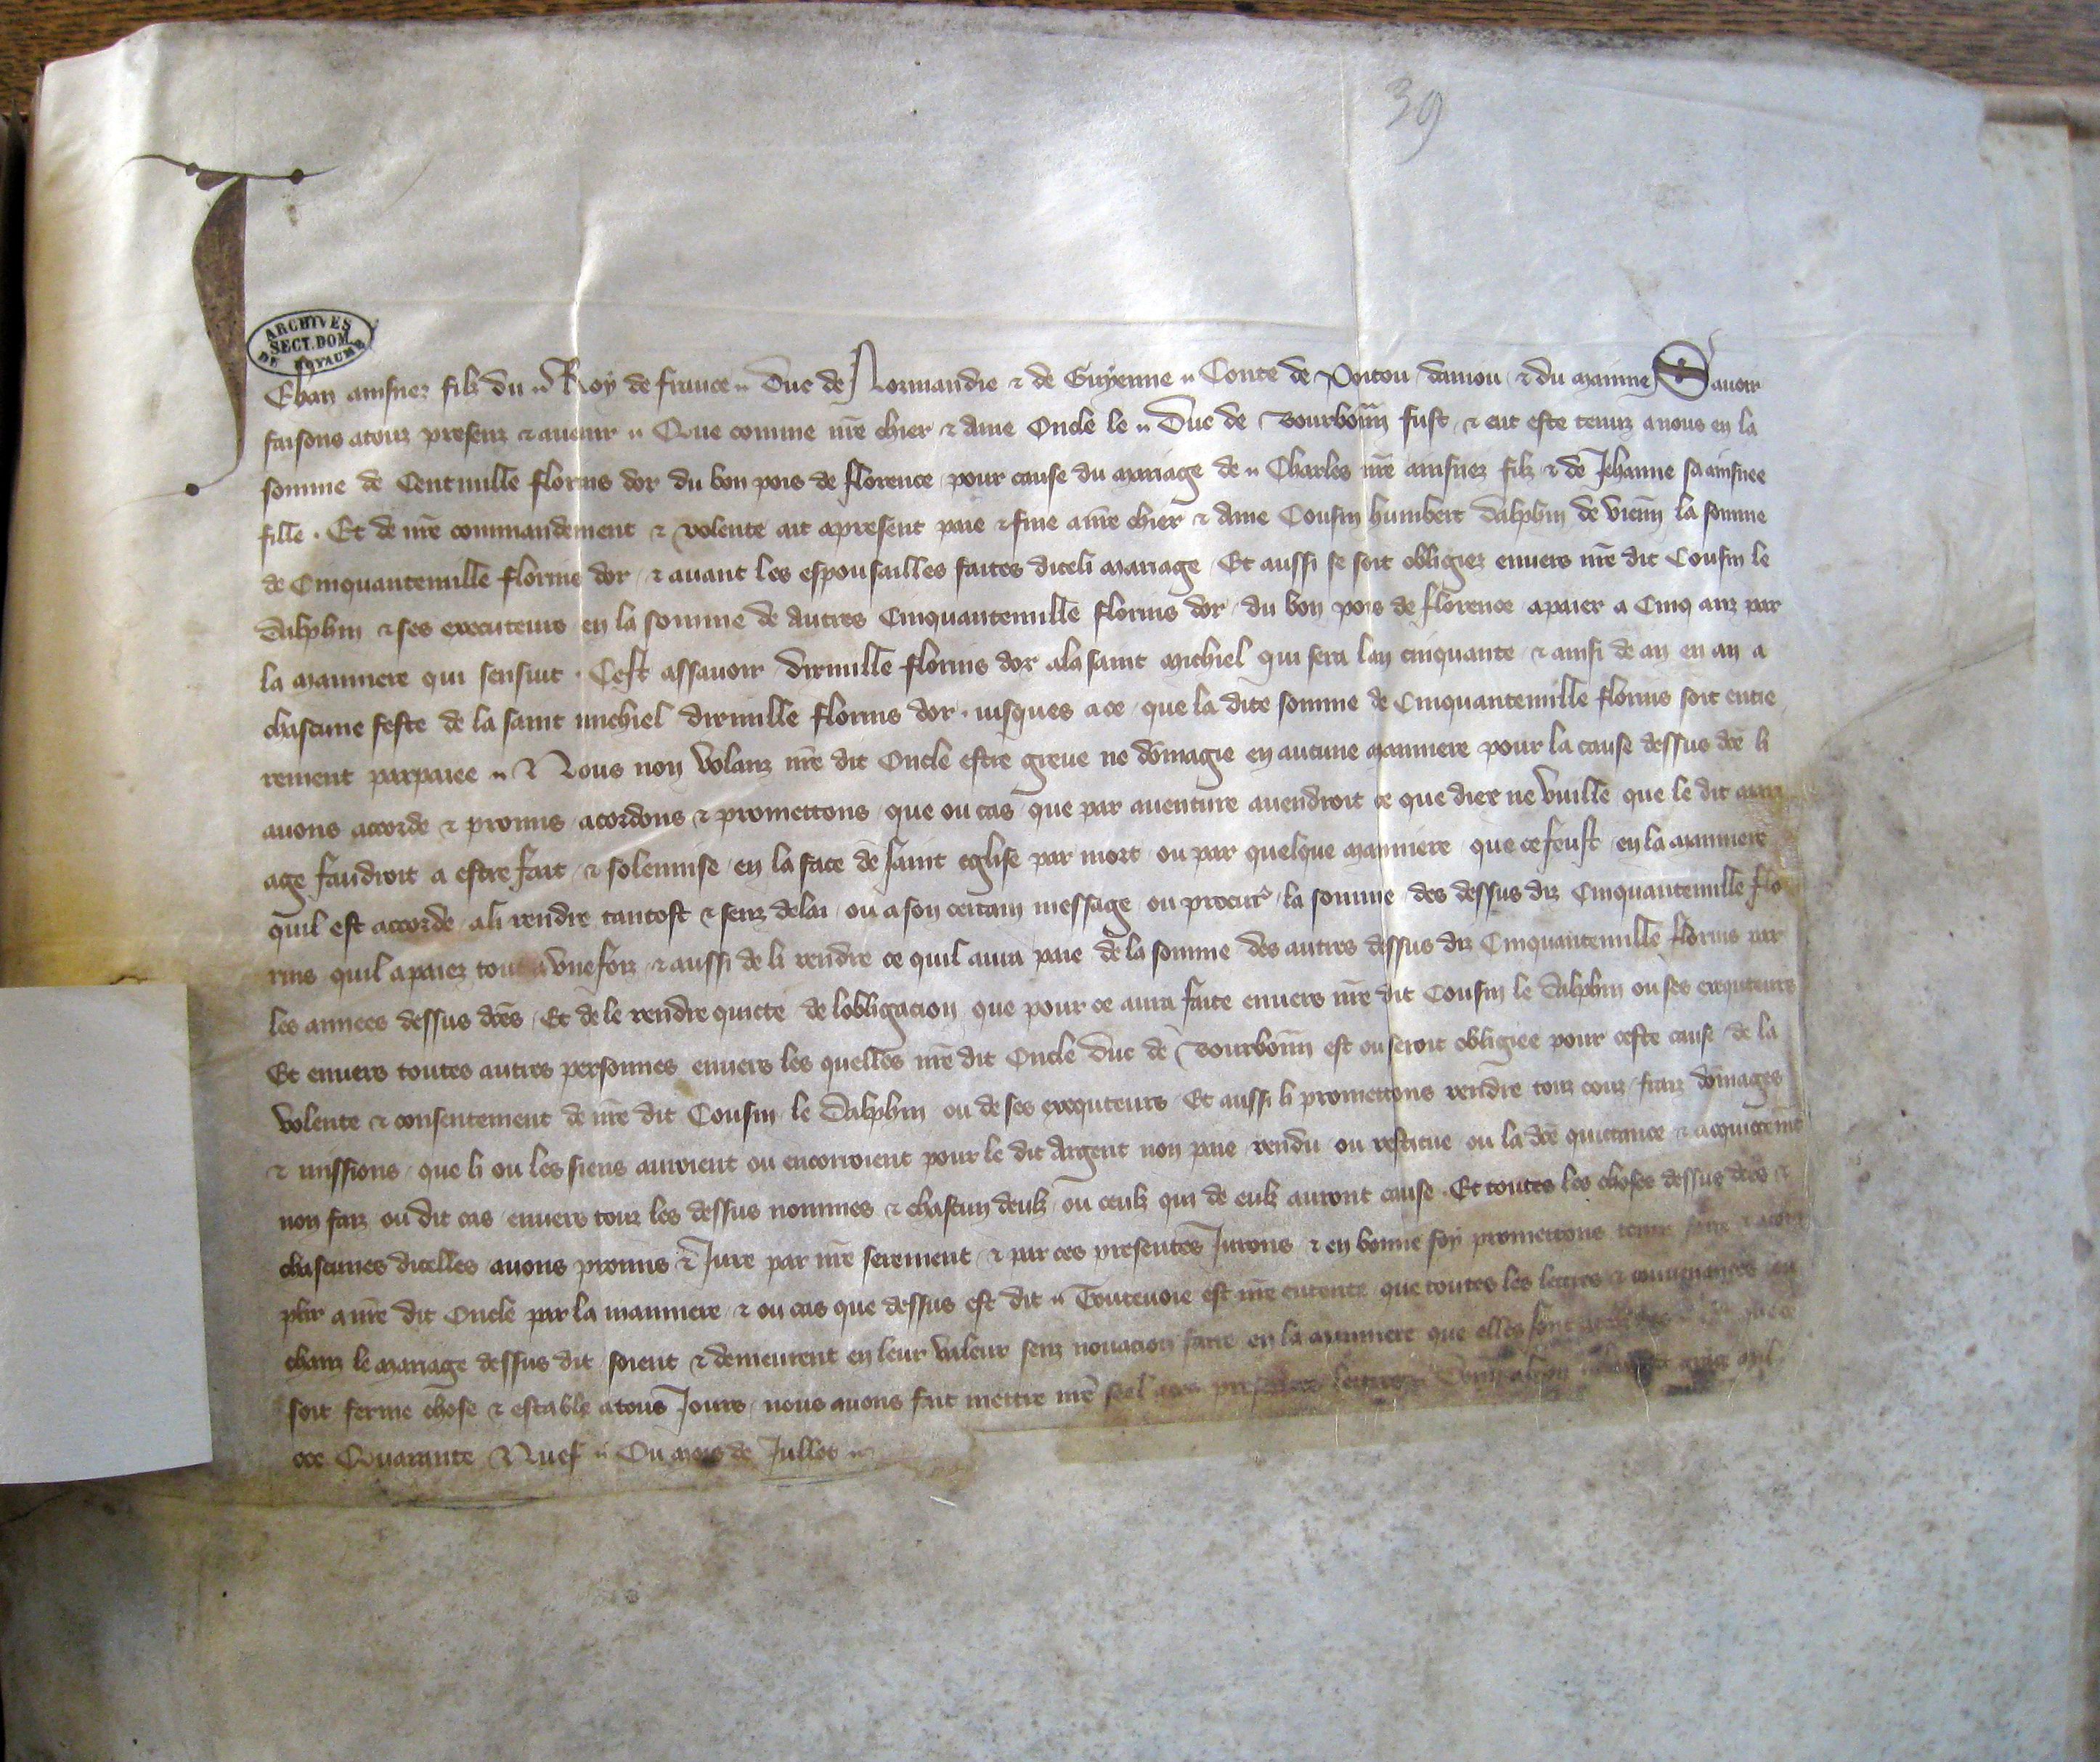 39
ARCHIVES
SECT. DOM.
DU ROYAUME
Jehan ainsnez filz du Roy de france Duc de Normandie & de Guyenne Conte de Poitou danjou & du Maine Savoir
faisons a touz presenz & avenir Que comme nr̃e chier & ame Oncle le Duc de Bourbonñ fust & eut este tenuz a nous en la
somme de Centmille florins dor du bon pois de florence pour cause du mariage de Charles nr̃e ainsnez filz & de Jehanne sa ainsnee
fille . Et de nr̃e commandement & volente ait apresent paie & fine a nr̃e chier & ame Cousin humbert dalphin de vienñ la somme
de Cinquantemille florins dor & avant les espousailles faites diceli mariage Et aussi se soit obligiez envers nr̃e dit Cousin le
dalphin & ses executeurs en la somme de autres Cinquantemille florins dor du bon pois de florence a paier a Cinq anz par
la manniere qui sensuit . Cest assavoir dixmille florins dor ala saint michiel qui sera lan cinquante & ainsi de an en an a
chascune feste de la saint michiel dixmille florins dor . jusques a ce que la dite somme de Cinquantemille florins soit entie
rement parpaiee & Nous non volanz nr̃e dit Oncle estre greve ne dõmagie en aucune manniere pour la cause dessus dc̃e li
avons accorde & promis acordons & promettons que ou cas que par aventure avendroit ce que diex ne vuille que le dit mari
age faudroit a estre fait & solennise en la face de saint eglise par mort ou par quelque manniere que ce feust en la manniere
quil est accorde ali rendre tantost & senz delai ou a son certain message ou procur̃ la somme des dessus diz Cinquantemille flo
rins quil a paiez tout a une foiz & aussi de li rendre ce quil aura paie de la somme des autres dessus diz Cinquantemille florins par
les annees dessus dc̃es Et de le rendre quitte de lobligacion que pour ce aura faite envers nr̃e dit Cousin le dalphin ou ses exequteurs
Et envers toutes autres personnes envers les quelles nr̃e dit Oncle Duc de Bourbonñ est ou seroit obligiee pour ceste cause de la
volente & consentement de nr̃e dit Cousin le dalphin ou de ses exequteurs Et aussi li promettons rendre touz couz fraiz dõmages
& missions que li ou les siens auroient ou encorroient pour le dit Argent non paie rendu ou restitue ou la dc̃e quittance & acquitem̃t
non faiz ou dit cas envers touz les dessus nommes & chascun deulz ou ceulz qui de eulz auront cause . Et toutes les choses dessus dc̃es &
chascunes dicelles avons promis & Jure par nr̃e serement & par ces presentes Jurons & en bonne foy promettons tenir faire & acom
plir a nr̃e dit Oncle par la manniere & ou cas que dessus est dit Toutevoie est nr̃e entente que toutes les lettres & convenances tou
chanz le mariage dessus dit soient & demeurent en leur valeur senz novacion faire en la manniere que elles sont
soit ferme chose & estable a touz Jours nous avons fait mettre nr̃e seel a ces presentes lettres mil
ccc Quarante & Nuef Ou mois de Jullet